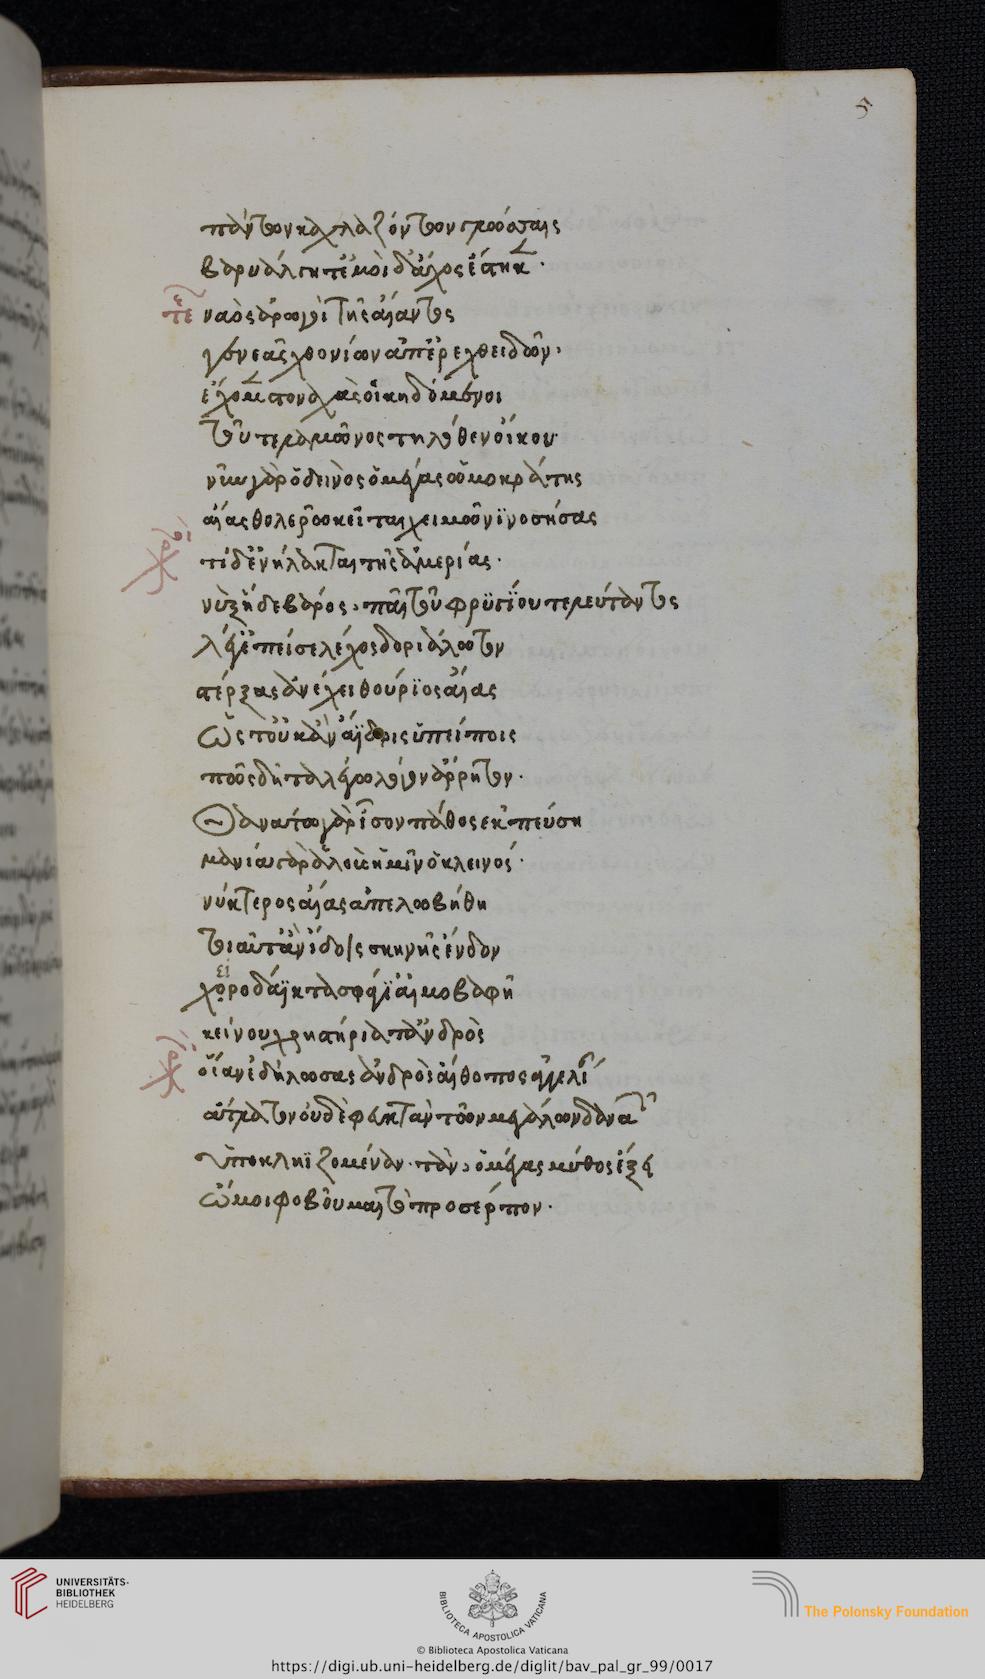 5
πάντων καχλαζόντων γλώσσαις
βαρυάλγητ' ἐμοὶ δ' ἄχος ἕστηκεν·
τέκ ναὸς ἀρωγοὶ τῆς αἴαντος
γενεᾶς χθονίων ἀπ' ἐρεχθειδῶν·
ἔχομεν στοναχὰς οἱ κηδόμενοι
τοῦ τελαμῶνος τηλόθεν οἴκου·
νῦν γὰρ ὁ δεινὸς ὁ μέγας ὠμοκρατὴς
αἴας θολερῷ κεῖται χειμῶνι νοσήσας
χορ τί δ' ἐνήλλακται τῆς ἁμερίας·
νὺξ ἥδε βάρος· παῖ τοῦ φρυγίου τελεύταντος
λέγ' ἐπεί σε λέχος δοριάλωτον
στέρξας ἀνέχει θούριος αἴας
ὥστ' οὐκ ἂν ἄϊδρις ὑπείποις
πῶς δῆτα λέγω λόγον ἄρρητον·
θανάτῳ γὰρ ἴσον πάθος ἐκπεύση
μανίᾳ γὰρ ἁλοὺς ἡμῖν ὁ κλεινός·
νύκτερος αἴας ἀπελωβήθη
τοιαῦτ' ἂν ἴδοις σκηνῆς ἔνδον
ει
χοροδάϊκτα σφάγι' αἱμοβαφῆ
κείνου χρηστήρια τἀνδρὸς
χορ οἵαν ἐδήλωσας ἀνδρὸς αἴθοπος ἀγγελίαν
ἄτλατον οὐδὲ φευκτὰν τῶν μεγάλων δαναῶν
ὑποκληϊζομέναν· τὰν ὁ μέγας μῦθος ἀέξει
ὤμοι φοβοῦμαι τὸ προσέρπον·
UNIVERSITÄTS-
BIBLIOTHEK
HEIDELBERG
BIBLIOTECA APOSTOLICA VATICANA
The Polonsky Foundation
© Biblioteca Apostolica Vaticana
https://digi.ub.uni-heidelberg.de/diglit/bav_pal_gr_99/0017